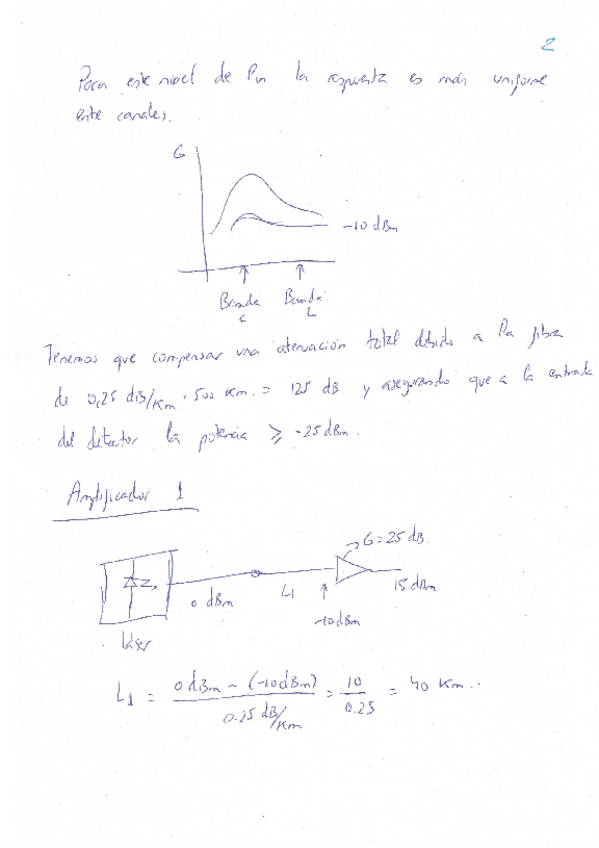 2
Para este nivel de Pin la respuesta es más uniforme
entre canales.
G
-10 dBm
Banda Banda
C L
Tenemos que compensar una atenuación total debido a la fibra
de 0,25 dB/Km · 500 Km. = 125 dB y asegurando que a la entrada
del detector la potencia ≥ -25 dBm.
Amplificador 1
G = 25 dB.
0 dBm L1 15 dBm
-10 dBm
Láser
L1 = 0 dBm - (-10 dBm) / 0.25 dB/Km = 10 / 0.25 = 40 Km..